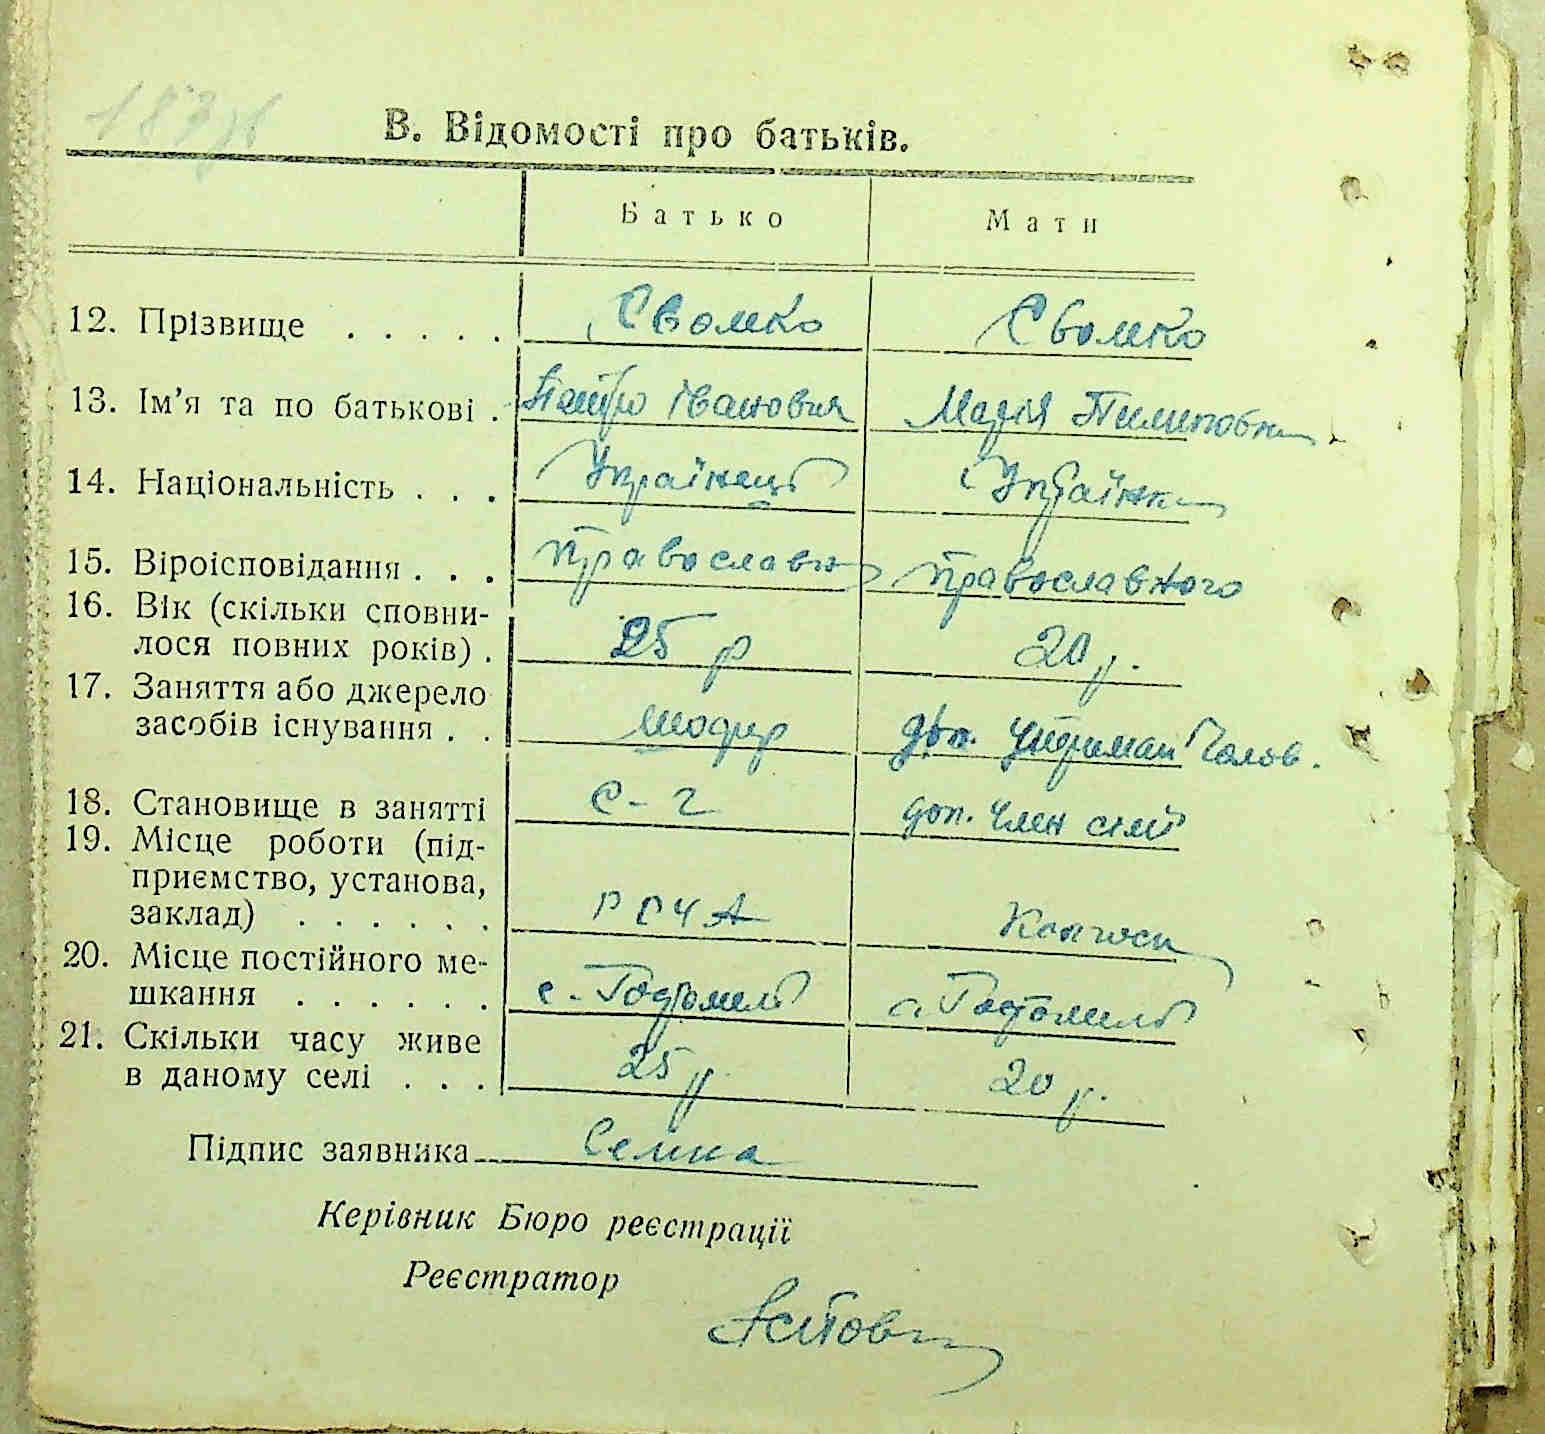 В. Відомості про батьків.
Батько Мати
12. Прізвище . . . . . Сволко Сволко
13. Ім'я та по батькові . Іванович Марія Пилиповн
14. Національність . . . Українець Українк
15. Віроісповідання . . . православн православного
16. Вік (скільки сповни-
лося повних років) . 25 р 20 р.
17. Заняття або джерело
засобів існування . . шофер утриман чолов.
18. Становище в занятті С-г доп. член сімї
19. Місце роботи (під-
приємство, установа,
заклад) . . . . . . РСЧА Колгосп
20. Місце постійного ме-
шкання . . . . . . с. Гостомель с. Гостомель
21. Скільки часу живе
в даному селі . . . 25 р. 20 р.
Підпис заявника
Керівник Бюро реєстрації
Реєстратор